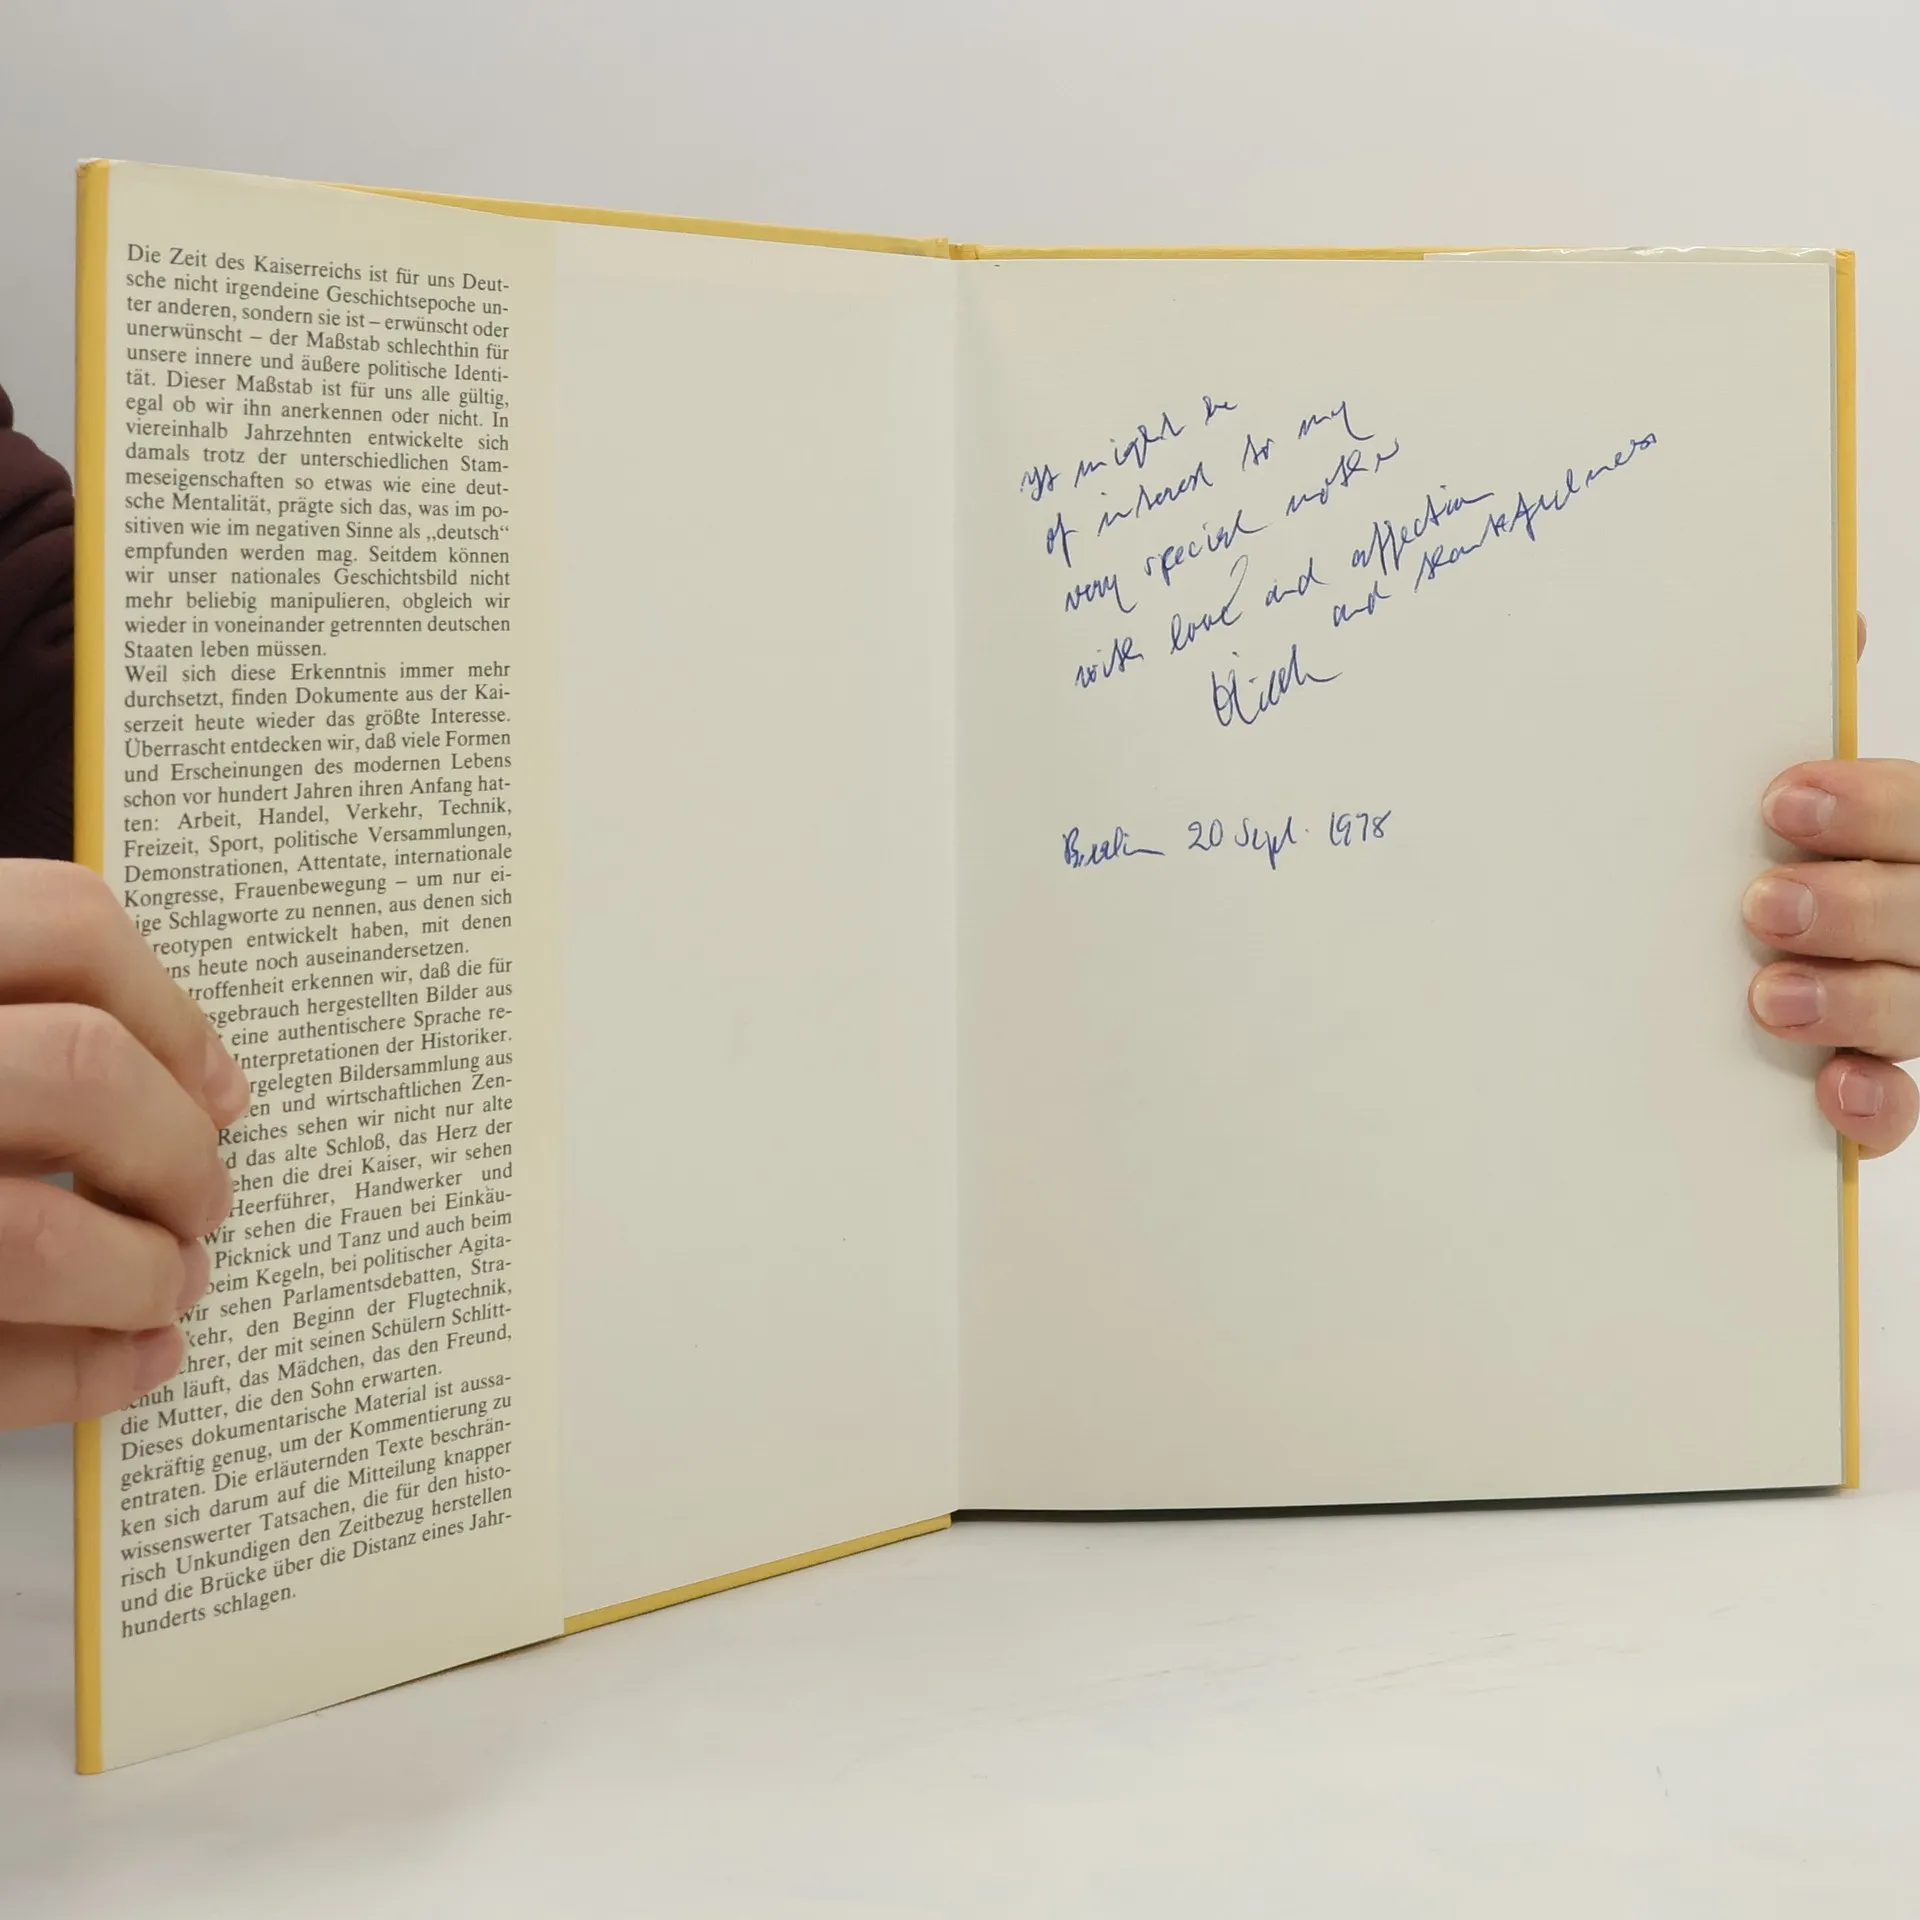 Die Zeit des Kaiserreichs ist für uns Deut-
sche nicht irgendeine Geschichtsepoche un-
ter anderen, sondern sie ist – erwünscht oder
unerwünscht – der Maßstab schlechthin für
unsere innere und äußere politische Identi-
tät. Dieser Maßstab ist für uns alle gültig,
egal ob wir ihn anerkennen oder nicht. In
viereinhalb Jahrzehnten entwickelte sich
damals trotz der unterschiedlichen Stam-
meseigenschaften so etwas wie eine deut-
sche Mentalität, prägte sich das, was im po-
sitiven wie im negativen Sinne als „deutsch“
empfunden werden mag. Seitdem können
wir unser nationales Geschichtsbild nicht
mehr beliebig manipulieren, obgleich wir
wieder in voneinander getrennten deutschen
Staaten leben müssen.
Weil sich diese Erkenntnis immer mehr
durchsetzt, finden Dokumente aus der Kai-
serzeit heute wieder das größte Interesse.
Überrascht entdecken wir, daß viele Formen
und Erscheinungen des modernen Lebens
schon vor hundert Jahren ihren Anfang hat-
ten: Arbeit, Handel, Verkehr, Technik,
Freizeit, Sport, politische Versammlungen,
Demonstrationen, Attentate, internationale
Kongresse, Frauenbewegung – um nur ei-
ige Schlagworte zu nennen, aus denen sich
reotypen entwickelt haben, mit denen
ns heute noch auseinandersetzen.
troffenheit erkennen wir, daß die für
sgebrauch hergestellten Bilder aus
eine authentischere Sprache re-
Interpretationen der Historiker.
rgelegten Bildersammlung aus
en und wirtschaftlichen Zen-
Reiches sehen wir nicht nur alte
d das alte Schloß, das Herz der
ehen die drei Kaiser, wir sehen
Heerführer, Handwerker und
Wir sehen die Frauen bei Einkäu-
Picknick und Tanz und auch beim
beim Kegeln, bei politischer Agita-
Wir sehen Parlamentsdebatten, Stra-
kehr, den Beginn der Flugtechnik,
hrer, der mit seinen Schülern Schlitt-
schuh läuft, das Mädchen, das den Freund,
die Mutter, die den Sohn erwarten.
Dieses dokumentarische Material ist aussa-
gekräftig genug, um der Kommentierung zu
entraten. Die erläuternden Texte beschrän-
ken sich darum auf die Mitteilung knapper
wissenswerter Tatsachen, die für den histo-
risch Unkundigen den Zeitbezug herstellen
und die Brücke über die Distanz eines Jahr-
hunderts schlagen.
might be
of interest to my
very special mother
with love and affection
and
Berlin 20 Sept. 1978